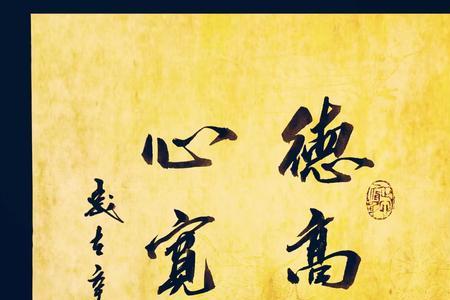 德高
心寬
歲在辛